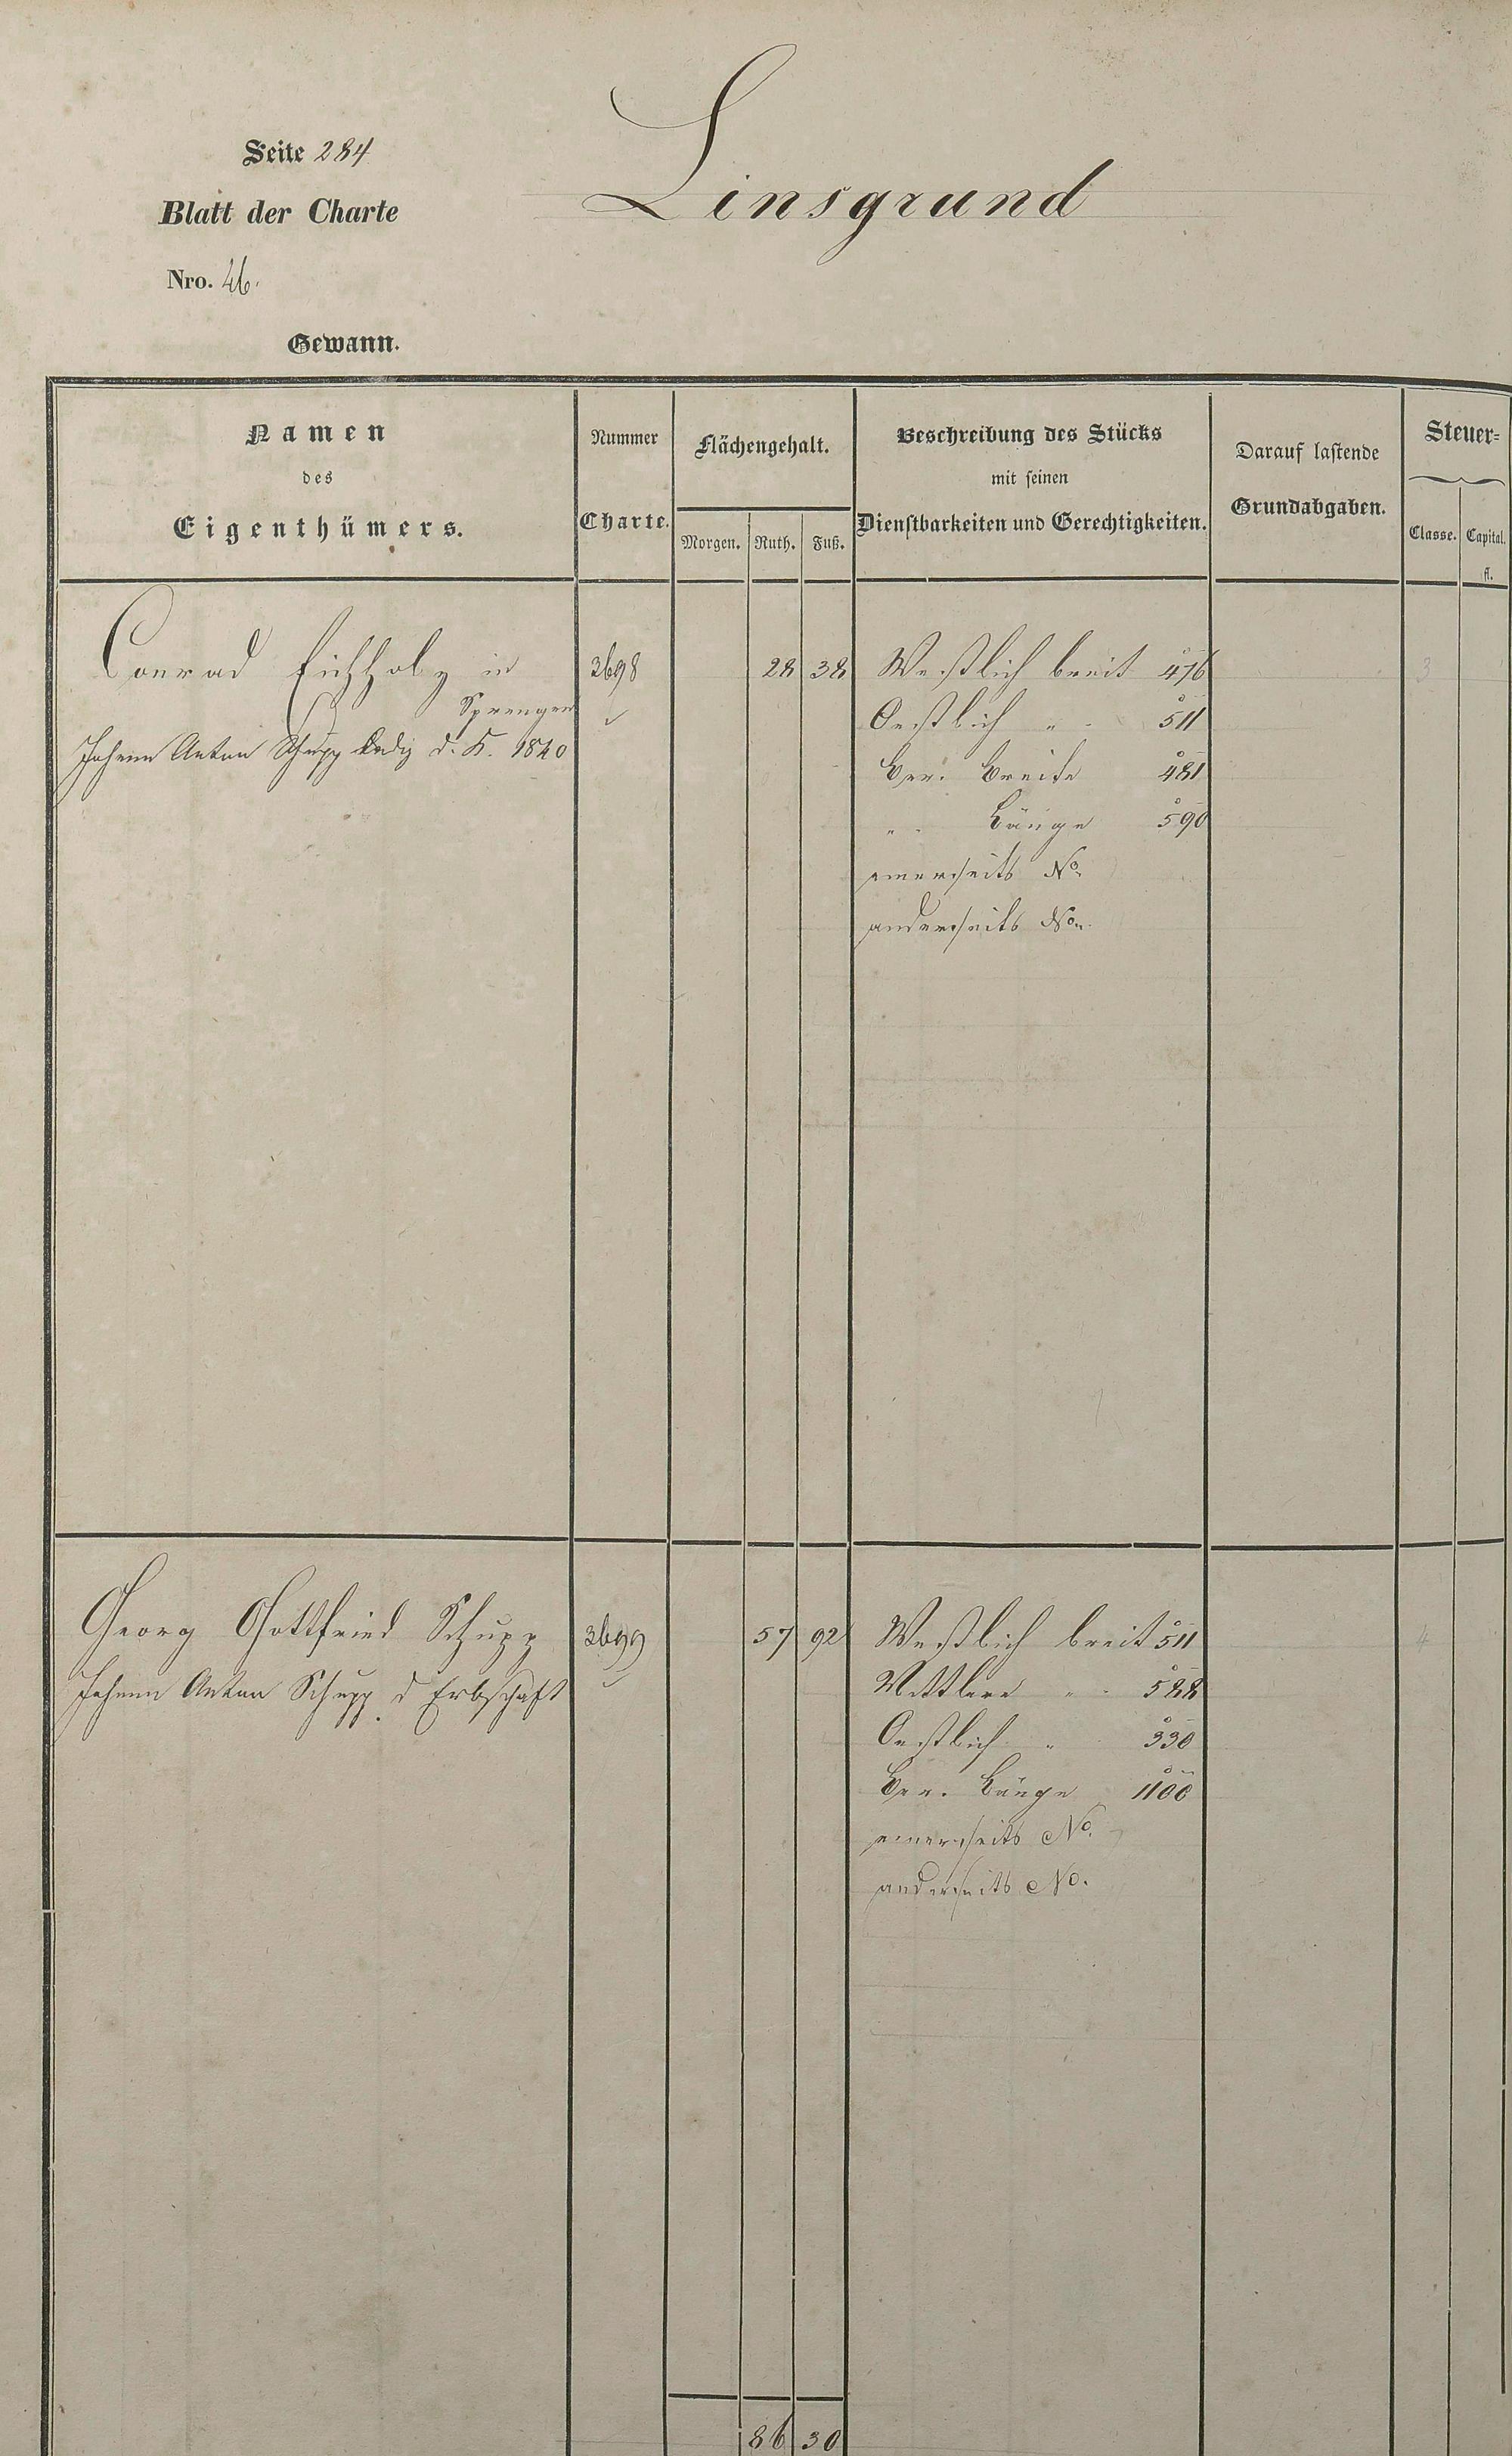 Seite 284
Linsgrund
Blatt der Charte
Nro. 46.
Gewann.
Namen
des
Eigenthümers.
Nummer
Charte.
Flächengehalt.
Morgen. Ruth. Fuß.
Beschreibung des Stücks
mit seinen
Dienstbarkeiten und Gerechtigkeiten.
Darauf lastende
Grundabgaben.
Steuer=
Classe. Capital.
fl.
Conrad Eichholz in 3698 28 38 Westlich breit 476 3
Sprengen Oestlich " 511
Johann Anton Schupp ledig d. K. 1840 Ber. Breite 481
" Länge 590
einerseits No.
anderseits No.
Georg Gottfried Schupp 3699 57 92 Westlich breit 511 4
Johann Anton Schupp d Erbschaft Mittlere " 588
Oestlich " 330
Ber. Länge 1100
einerseits No.
anderseits No.
86 30